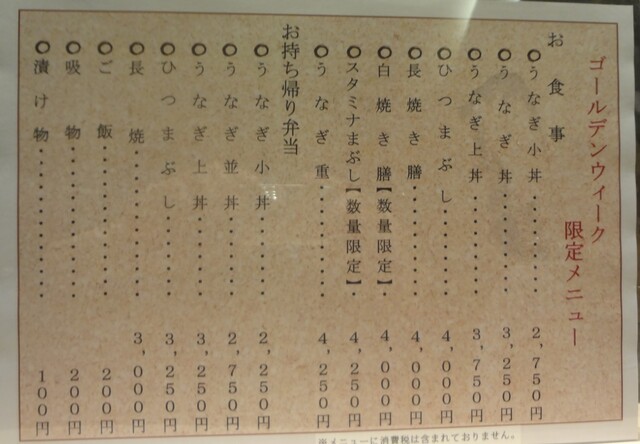 ゴールデンウィーク
限定メニュー
お食事
○うなぎ小丼・・・・・・・・2,750円
○うなぎ丼・・・・・・・・3,250円
○うなぎ上丼・・・・・・・・3,750円
○ひつまぶし・・・・・・・・4,000円
○長焼き膳・・・・・・・・4,000円
○白焼き膳【数量限定】・4,000円
○スタミナまぶし【数量限定】・4,250円
○うなぎ重・・・・・・・・4,250円
お持ち帰り弁当
○うなぎ小丼・・・・・・・・2,250円
○うなぎ並丼・・・・・・・・2,750円
○うなぎ上丼・・・・・・・・3,250円
○ひつまぶし・・・・・・・・3,250円
○長焼・・・・・・・・・・・3,000円
○ご飯・・・・・・・・・・・200円
○吸物・・・・・・・・・・・200円
○漬け物・・・・・・・・・・・100円
※メニューに消費税は含まれておりません。